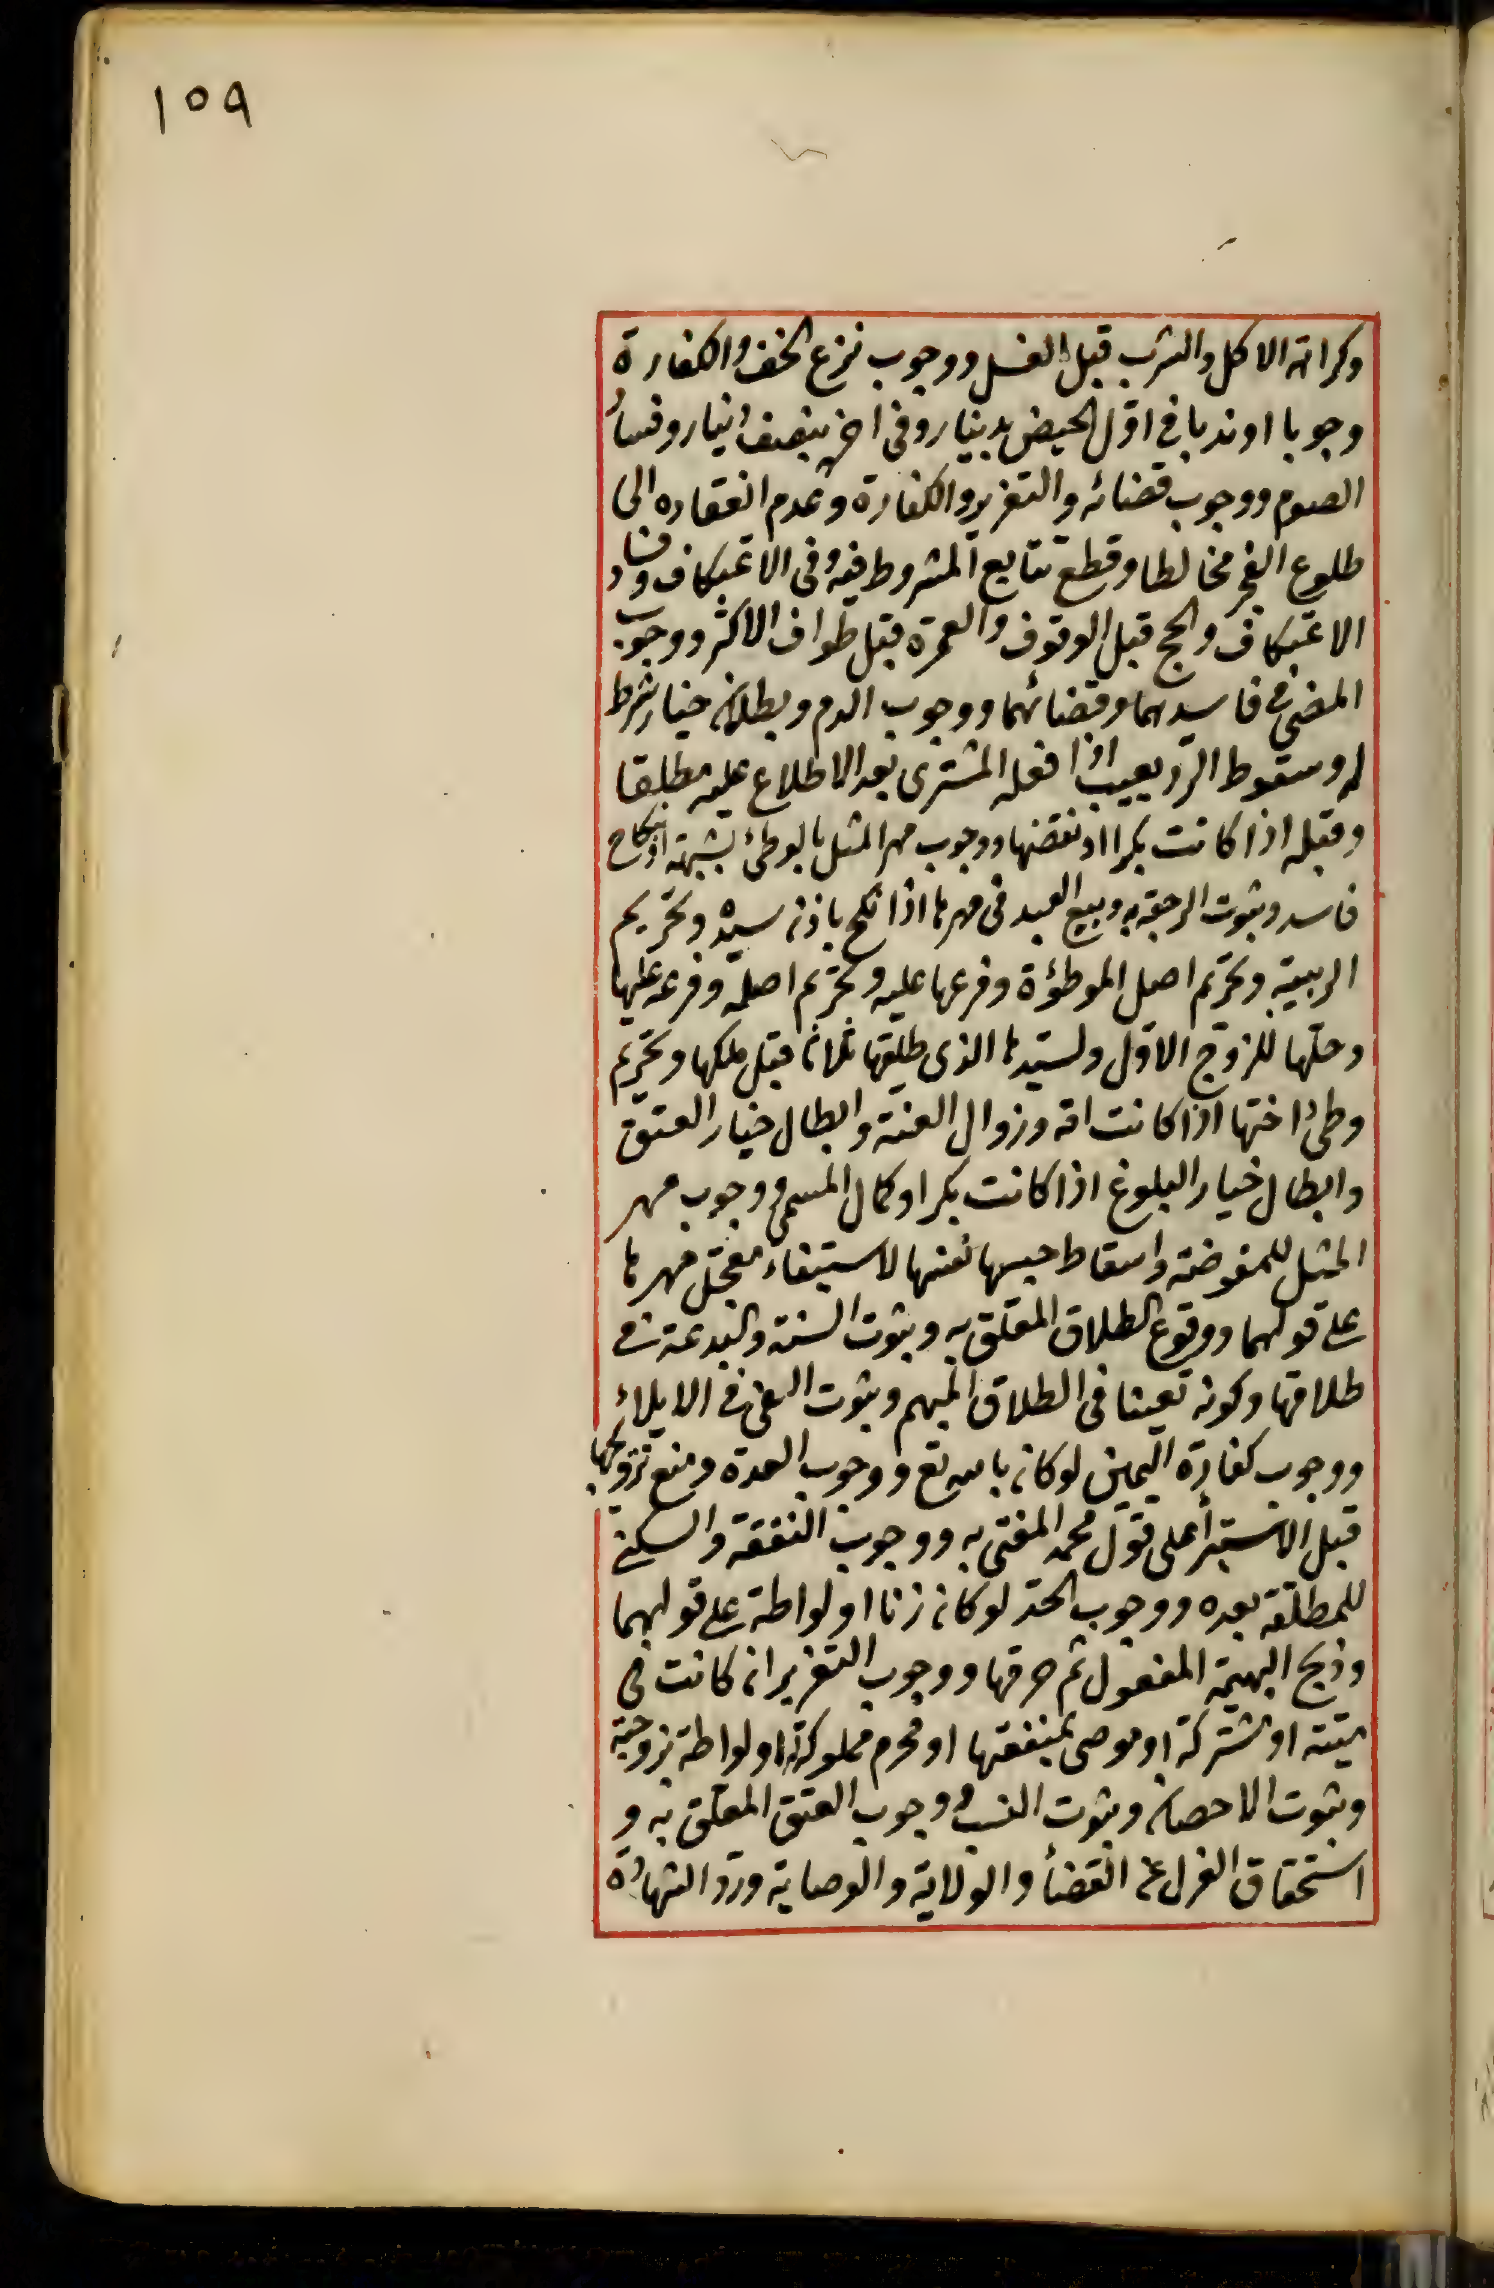 ١٥٩
وكراهة الاكل والشرب قبل الغسل ووجوب نزع الخف والكفارة
وجوبا او ندبا في اول الحيض بدينار وفى اخره بنصف دينار وفساد
الصوم ووجوب قضائه والتعزير والكفارة وعدم انعقاده الى
طلوع الفجر مخالطا وقطع تتابع المشروط فيه وفى الاعتكاف وفساد
الاعتكاف والحج قبل الوقوف والعمرة قبل طواف الاكثر ووجوب
المضى في فاسدهما وقضائهما ووجوب الدم وبطلان خيار شرط
له وسقوط الرد بعيب اذا فعله المشترى بعد الاطلاع عليه مطلقا
وقبله اذا كانت بكرا او نقضها ووجوب مهر المثل بالوطئ بشبهة او بنكاح
فاسد وثبوت الرجعة به وبيع العبد فى مهرها اذا نكح باذن سيده وتحريم
الربيبة وتحريم اصل الموطؤة وفرعها عليه وتحريم اصله وفرعه عليها
وحلها للزوج الاول ولسيدها الذى طلقها ثلاثا قبل ملكها وتحريم
وطئ اختها اذا كانت امة وزوال العنة وابطال خيار العتق
وابطال خيار البلوغ اذا كانت بكرا وكمال المسمى ووجوب مهر
المثل للمفوضة واسقاط حبسها نفسها لاستيفاء معجل مهرها
على قولهما ووقوع الطلاق المعلق به وثبوت السنة والبدعة في
طلاقها وكونه تعيينا فى الطلاق المبهم وثبوت الفئ في الايلاء
ووجوب كفارة اليمين لو كان بالله تع ووجوب العدة ومنع تزويجها
قبل الاستبرأ على قول محمد المفتى به ووجوب النفقة والسكنى
للمطلقة بعده ووجوب الحد لو كان زنا او لواطة على قولهما
وذبح البهيمة المفعول ثم حرقها ووجوب التعزير ان كانت في
ميتة او مشتركة او موصى بمنفعتها او محرم مملوكة او لواطة بزوجته
وثبوت الاحصان وثبوت النسب ووجوب العتق المعلق به و
استحقاق العزل عن القضأ والولاية والوصاية ورد الشهادة